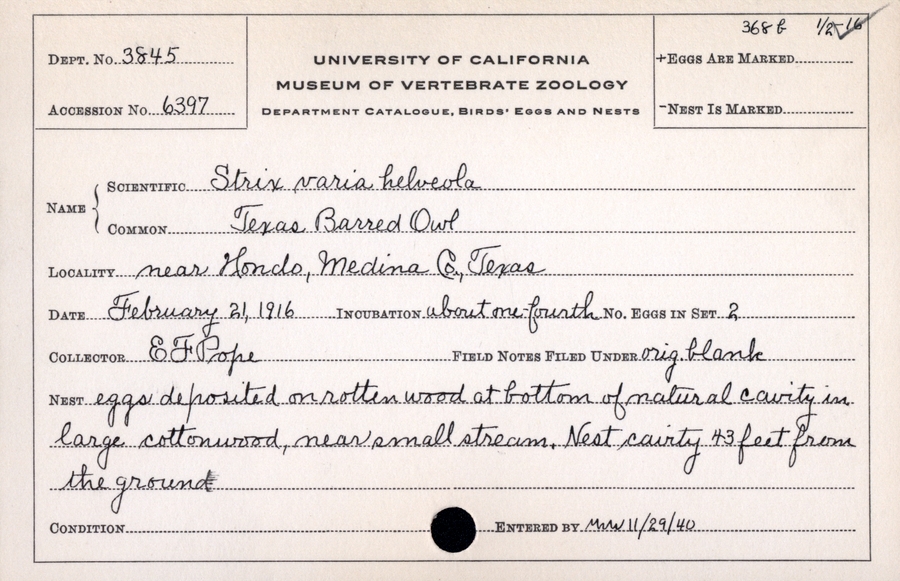 368 b 1/2-16
DEPT. No. 3845
UNIVERSITY OF CALIFORNIA
+EGGS ARE MARKED
MUSEUM OF VERTEBRATE ZOOLOGY
ACCESSION No. 6397
DEPARTMENT CATALOGUE, BIRDS' EGGS AND NESTS
-NEST IS MARKED
NAME
SCIENTIFIC Strix varia helveola
COMMON Texas Barred Owl
LOCALITY near Hondo, Medina Co., Texas
DATE February 21, 1916 INCUBATION about one-fourth No. EGGS IN SET 2
COLLECTOR E F Pope FIELD NOTES FILED UNDER orig. blank
NEST eggs deposited on rotten wood at bottom of natural cavity in
large cottonwood, near small stream. Nest cavity 43 feet from
the ground
CONDITION ENTERED BY MWW 11/29/40